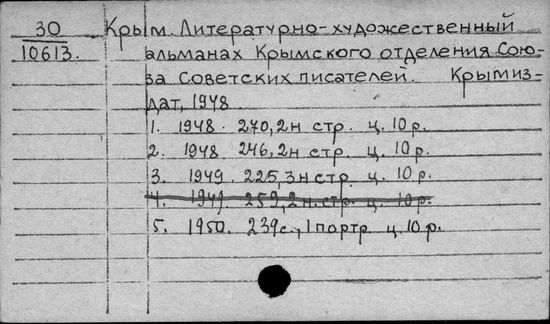 30 Крым. Литературно-художественный
10613. альманах Крымского отделения Сою-
за Советских писателей. Крымиз-
дат, 1948
1. 1948. 270, 2н стр. ц. 10 р.
2. 1948. 246, 2н стр. ц. 10 р.
3. 1949. 225, 3н стр. ц. 10 р.
4. 1949 259, 2н. стр. ц. 10 р.
5. 1950. 239с., 1 портр. ц. 10 р.